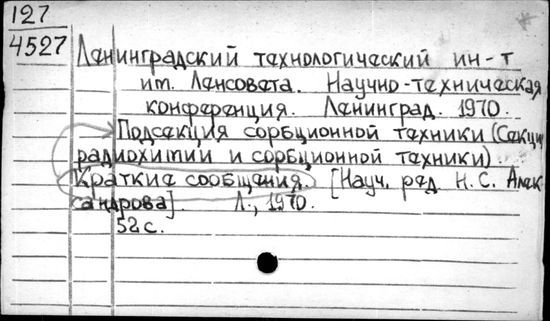 127
4527
Ленинградский технологический ин-т
им. Ленсовета. Научно-техническая
конференция. Ленинград. 1970.
Подсекция сорбционной техники (Секции
радиохимии и сорбционной техники).
Краткие сообщения. [Науч. ред. Н. С. Алек-
сандрова]. Л., 1970.
52 с.